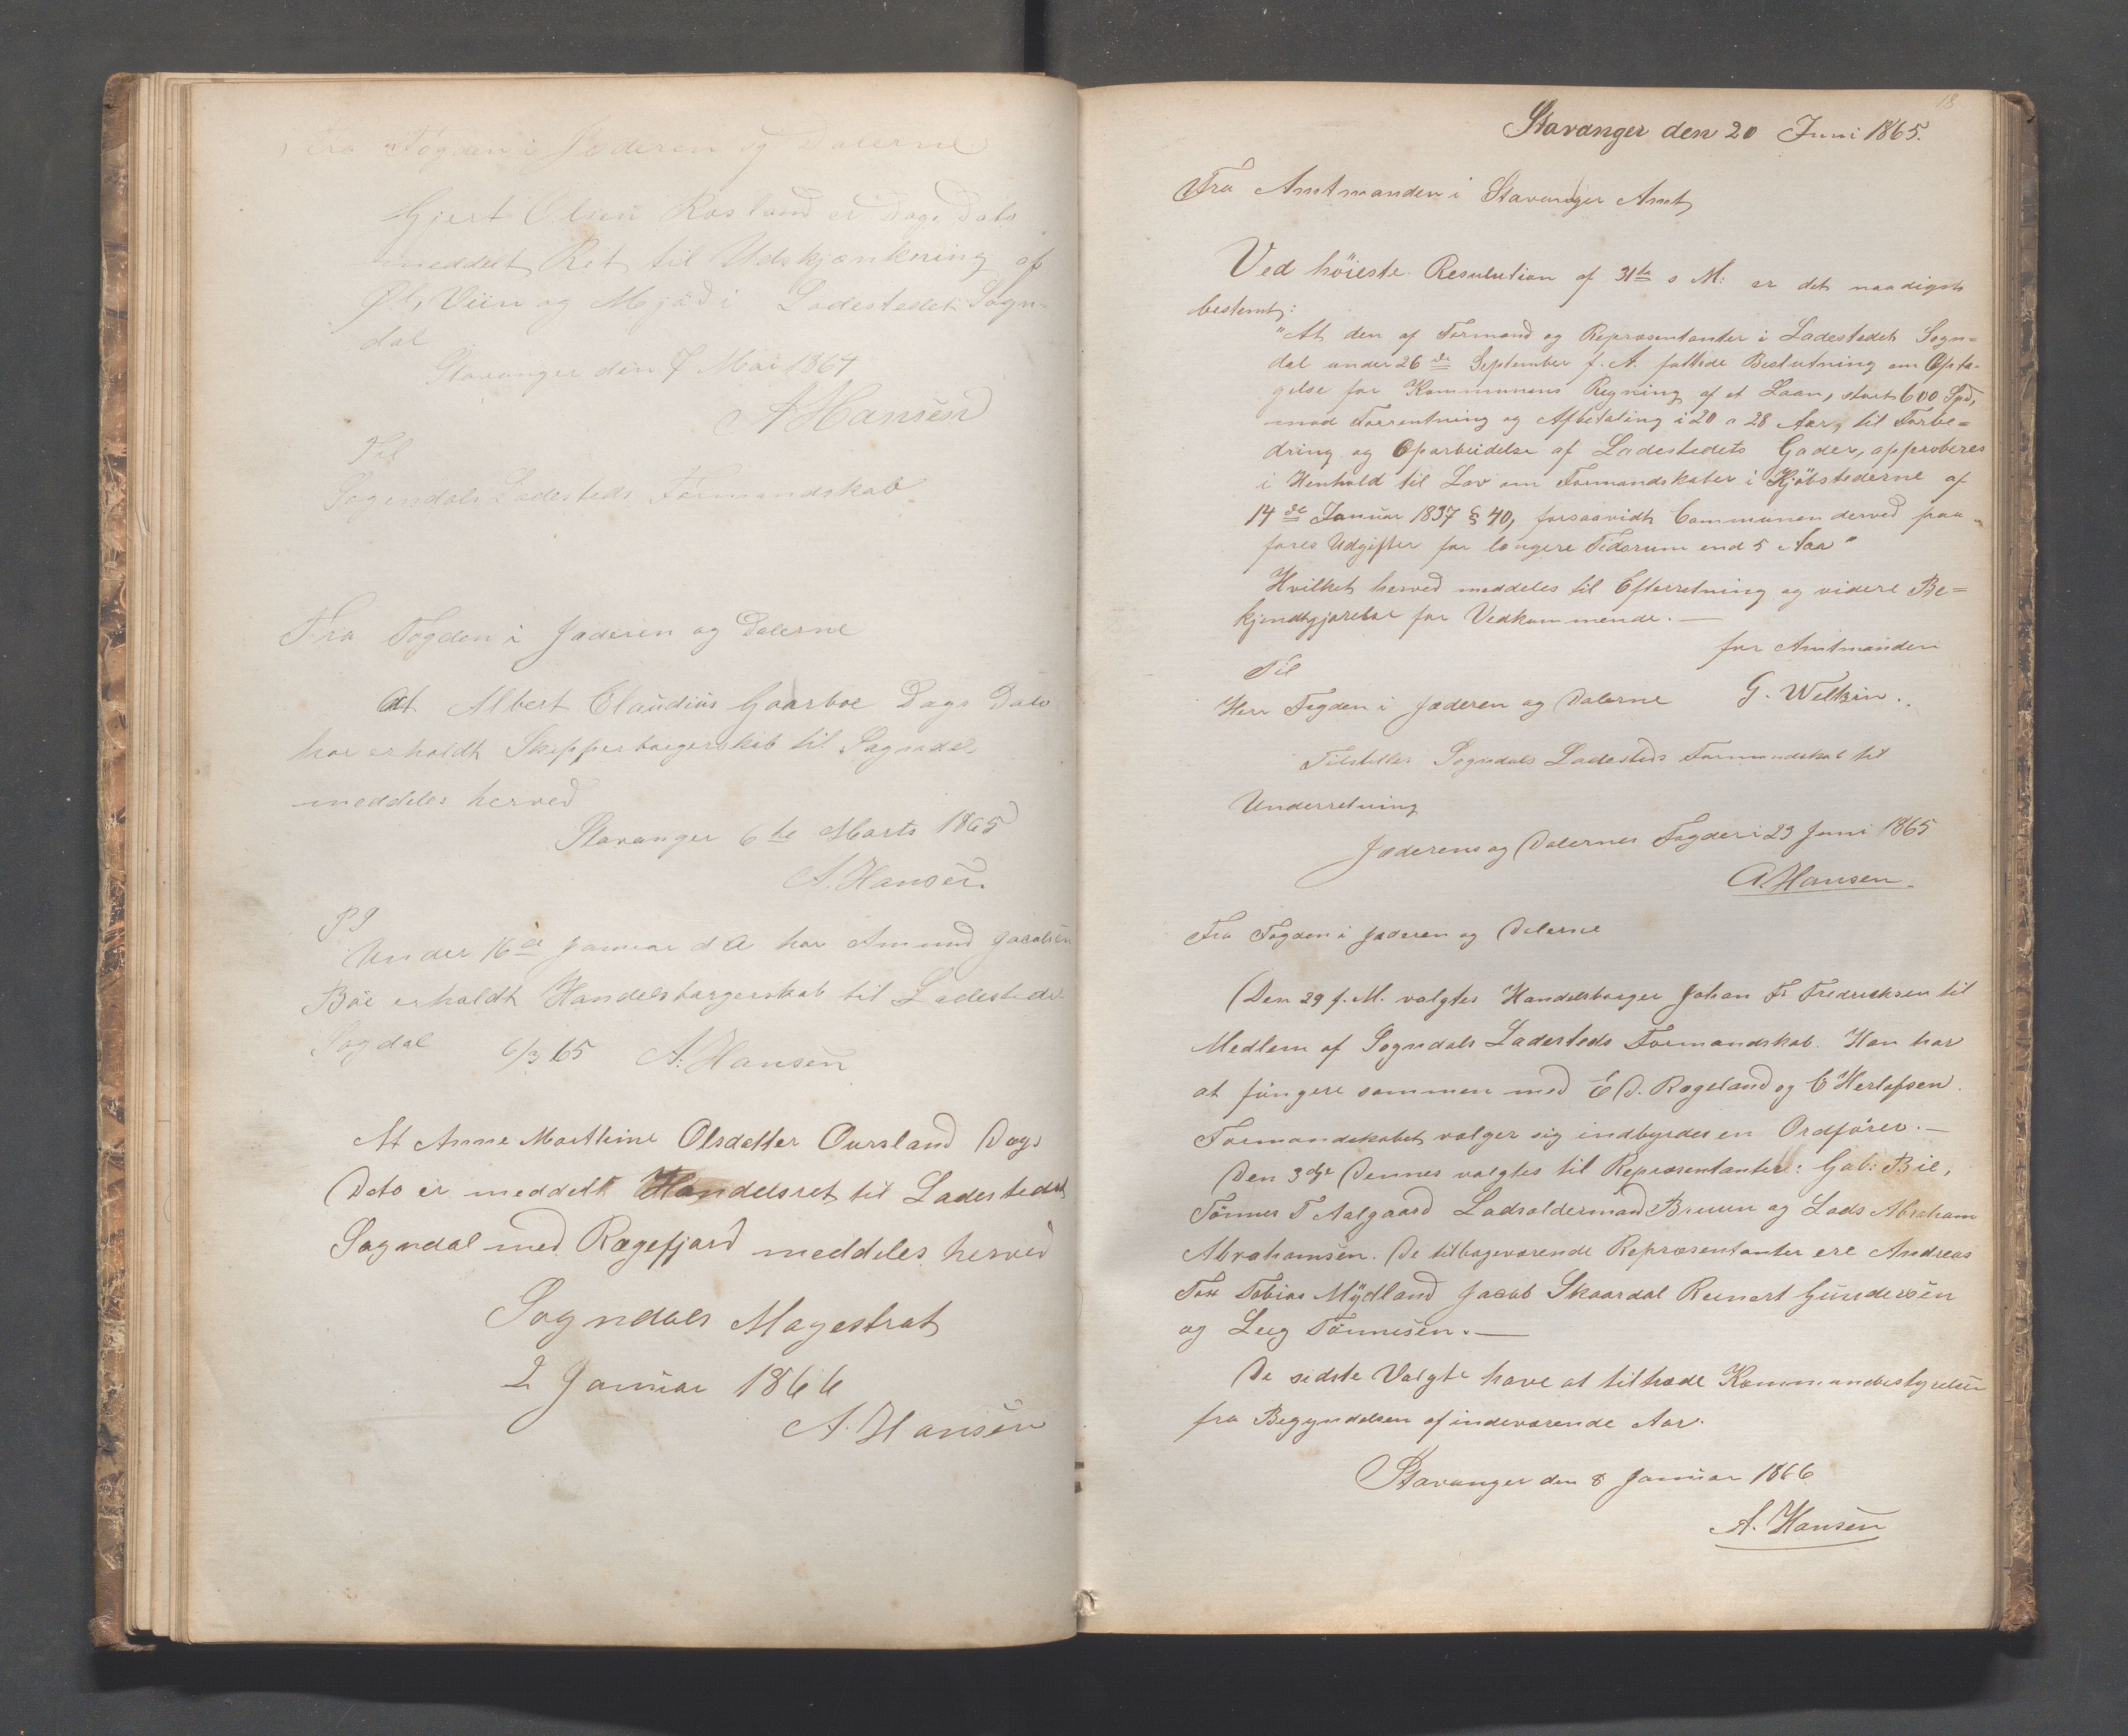 Fra Fogden i Jæderen og Dalerne
Gjert Olsen Rosland er Dags Dato
meddelt Ret til Udskjænkering af
Øl, Viin og Mjød i Ladestedet Sogn-
dal
Stavanger den 7 Mai 1864
A Hansen
Til
Sogendals Ladesteds Formandskab
Fra Fogden i Jæderen og Dalerne
At Albert Claudius Gaarboe Dags Dato
har erholdt Skipperborgerskab til Sogndal
meddeles herved
Stavanger 6te Marts 1865
A. Hansen
PS
Under 16de Januar d A har Amund Jacobsen
Böe erholdt Handelsborgerskab til Ladestedet
Sogdal 6/3 65 A. Hansen
At Anne Marthine Olsdatter Oursland Dags
Dato er meddelt Handelsret til Ladestedet
Sogndal med Rægefjord meddeles herved
Sogndals Magestrat
2 Januar 1866
A. Hansen
18
Stavanger den 20 Juni 1865.
Fra Amtmanden i Stavanger Amt
Ved höieste Resulution af 31te s M: er det naadigst
bestemt:
"At den af Formand og Repræsentanter i Ladestedet Sogn=
dal under 26de September f. A. fattede Beslutning om Opta-
gelse for Kommunens Regning af et Laan, stort 600 Spd,
mod Forrentning og Afbetaling i 20 a 28 Aar, til Forbe=
dring og Oparbeidelse af Ladestedets Gader, approberes
i Henhold til Lov om Formandskaber i Kjöbstederne af
14de Januar 1837 § 40, forsaavidt Communen derved paa-
fores Udgifter for længere Tidsrum end 5 Aar"
Hvilket herved meddeles til Efterretning og videre Be=
kjendtgjørelse for Vedkommende. —
for Amtmanden
Til
Herr Fogden i Jæderen og Dalerne G. Weltzin.
Tilstilles Sogndals Ladesteds Formandskab til
Underretning
Jæderens og Dalernes Fogderi 23 Juni 1865
A. Hansen
Fra Fogden i Jæderen og Dalerne
Den 29 f. M. valgtes Handelsborger Johan Fr Fredricksen til
Medlem af Sogndals Ladesteds Formandskab. Han har
at fungere sammen med E D. Rægeland og C Herlofsen.
Formandskabet vælger sig indbyrdes en Ordförer. —
Den 3dje Dennes valgtes til Repræsentanter: Gab: Bie,
Tönnes T Aalgaard Ladsolderman Bruun og Lods Abraham
Abrahamsen. De tilbageværende Repræsentanter ere Andreas
Fox Tobias Mydland Jacob Skaardal Reinert Gundersen
og Leeg Tönnesen. —
De sidste Valgte have at tiltræde Kommunebestyrelsen
fra Begyndelsen af indeværende Aar.
Stavanger den 8 Januar 1866
A. Hansen